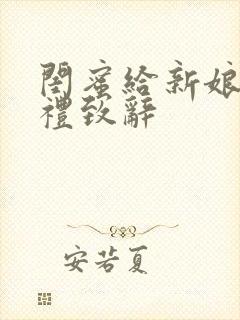 閨蜜給新娘
禮致辭
安若夏